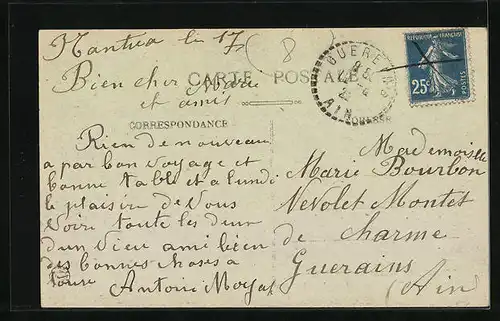 Nantua le 17
8
CARTE POSTALE
Bien cher Marie
et amis
CORRESPONDANCE
Rien de nouveau
a par bon voyage et
bonne table et a lundi
le plaisir de vous
voir toute les deux
d'un vieu ami bien
des bonnes choses a
Antoine
GUEREINS
AIN
REPUBLIQUE FRANÇAISE
25c
POSTES
Mademoiselle
Marie Bourbon
Montet
de charme
Guerains
(Ain)